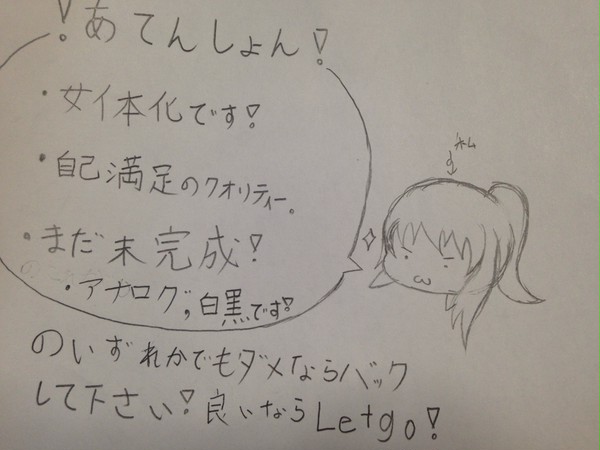 ！あてんしょん！
・女体化です！
・自己満足のクオリティー。
・まだ未完成！
・アナログ，白黒です！
のいずれかでもダメならバック
して下さい！良いなら Let go！